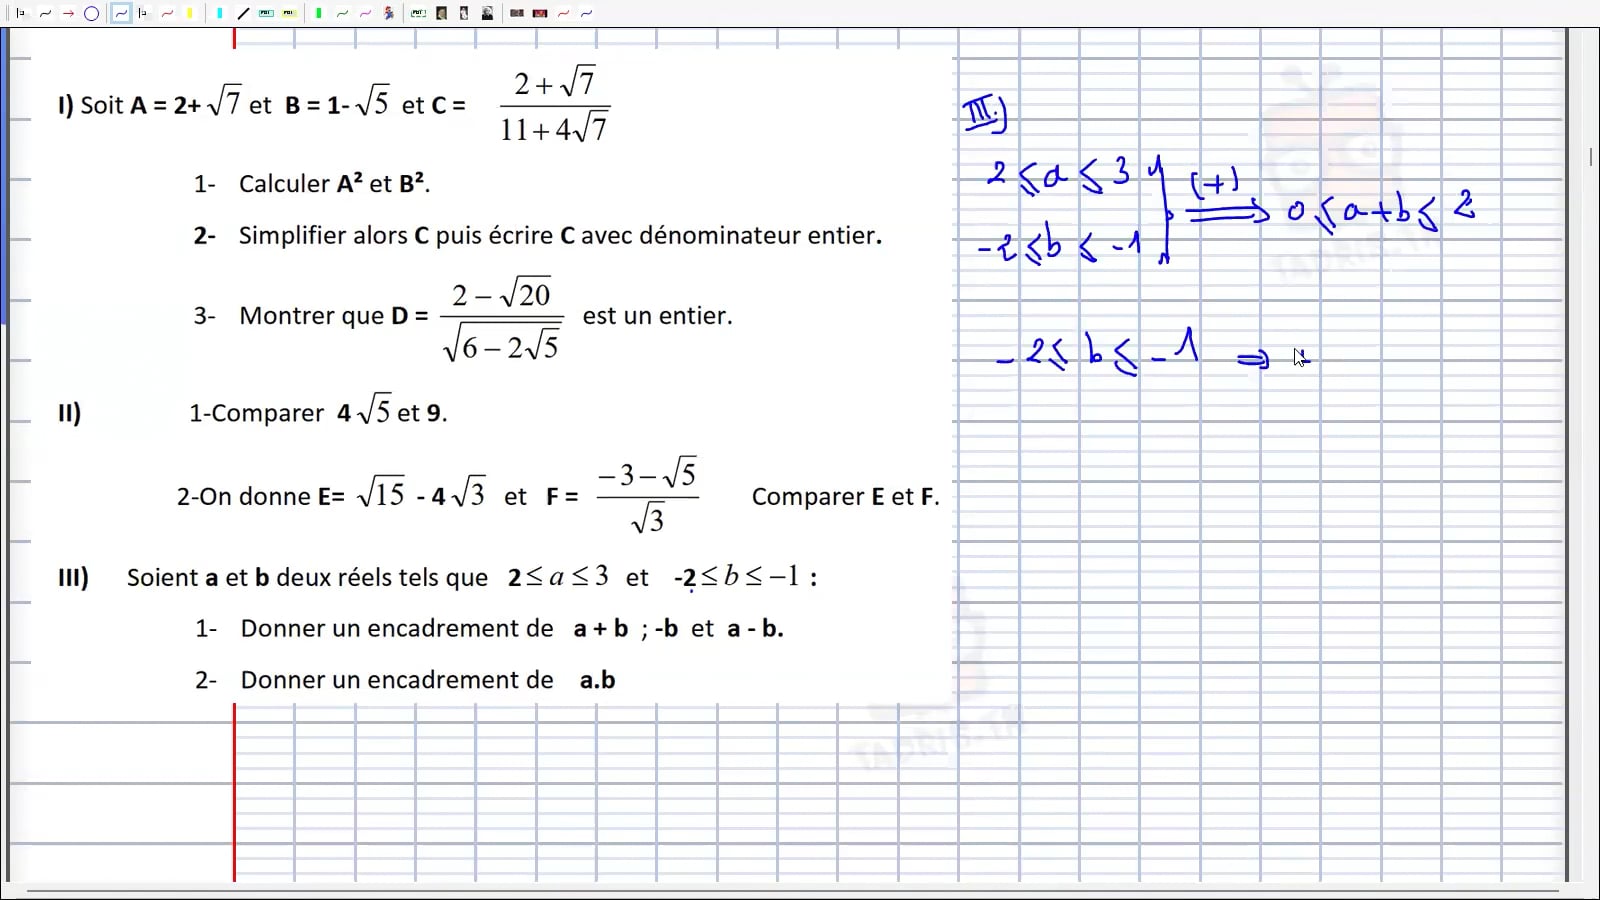 I) Soit A = 2+ √7 et B = 1- √5 et C = (2 + √7)/(11 + 4√7)
1- Calculer A² et B².
2- Simplifier alors C puis écrire C avec dénominateur entier.
3- Montrer que D = (2 − √20)/(√(6 − 2√5)) est un entier.
II) 1-Comparer 4√5 et 9.
2-On donne E= √15 - 4√3 et F = (−3 − √5)/(√3) Comparer E et F.
III) Soient a et b deux réels tels que 2 ≤ a ≤ 3 et -2 ≤ b ≤ −1 :
1- Donner un encadrement de a + b ; -b et a - b.
2- Donner un encadrement de a.b
III.)
2 ≤ a ≤ 3
-2 ≤ b ≤ -1
(+) ⟹ 0 ≤ a+b ≤ 2
-2 ≤ b ≤ -1 ⇒
TADRIS.TN
TADRIS.TN